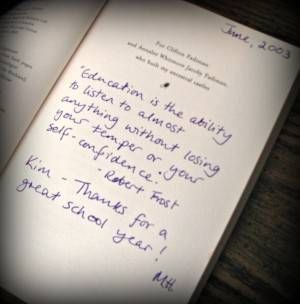 June, 2003
For Clifton Fadiman
and Annalee Whitmore Jacoby Fadiman,
who built my ancestral castles
"Education is the ability
to listen to almost
anything without losing
your temper or your
self-confidence."
- Robert Frost
Kim - Thanks for a
great school year!
MH